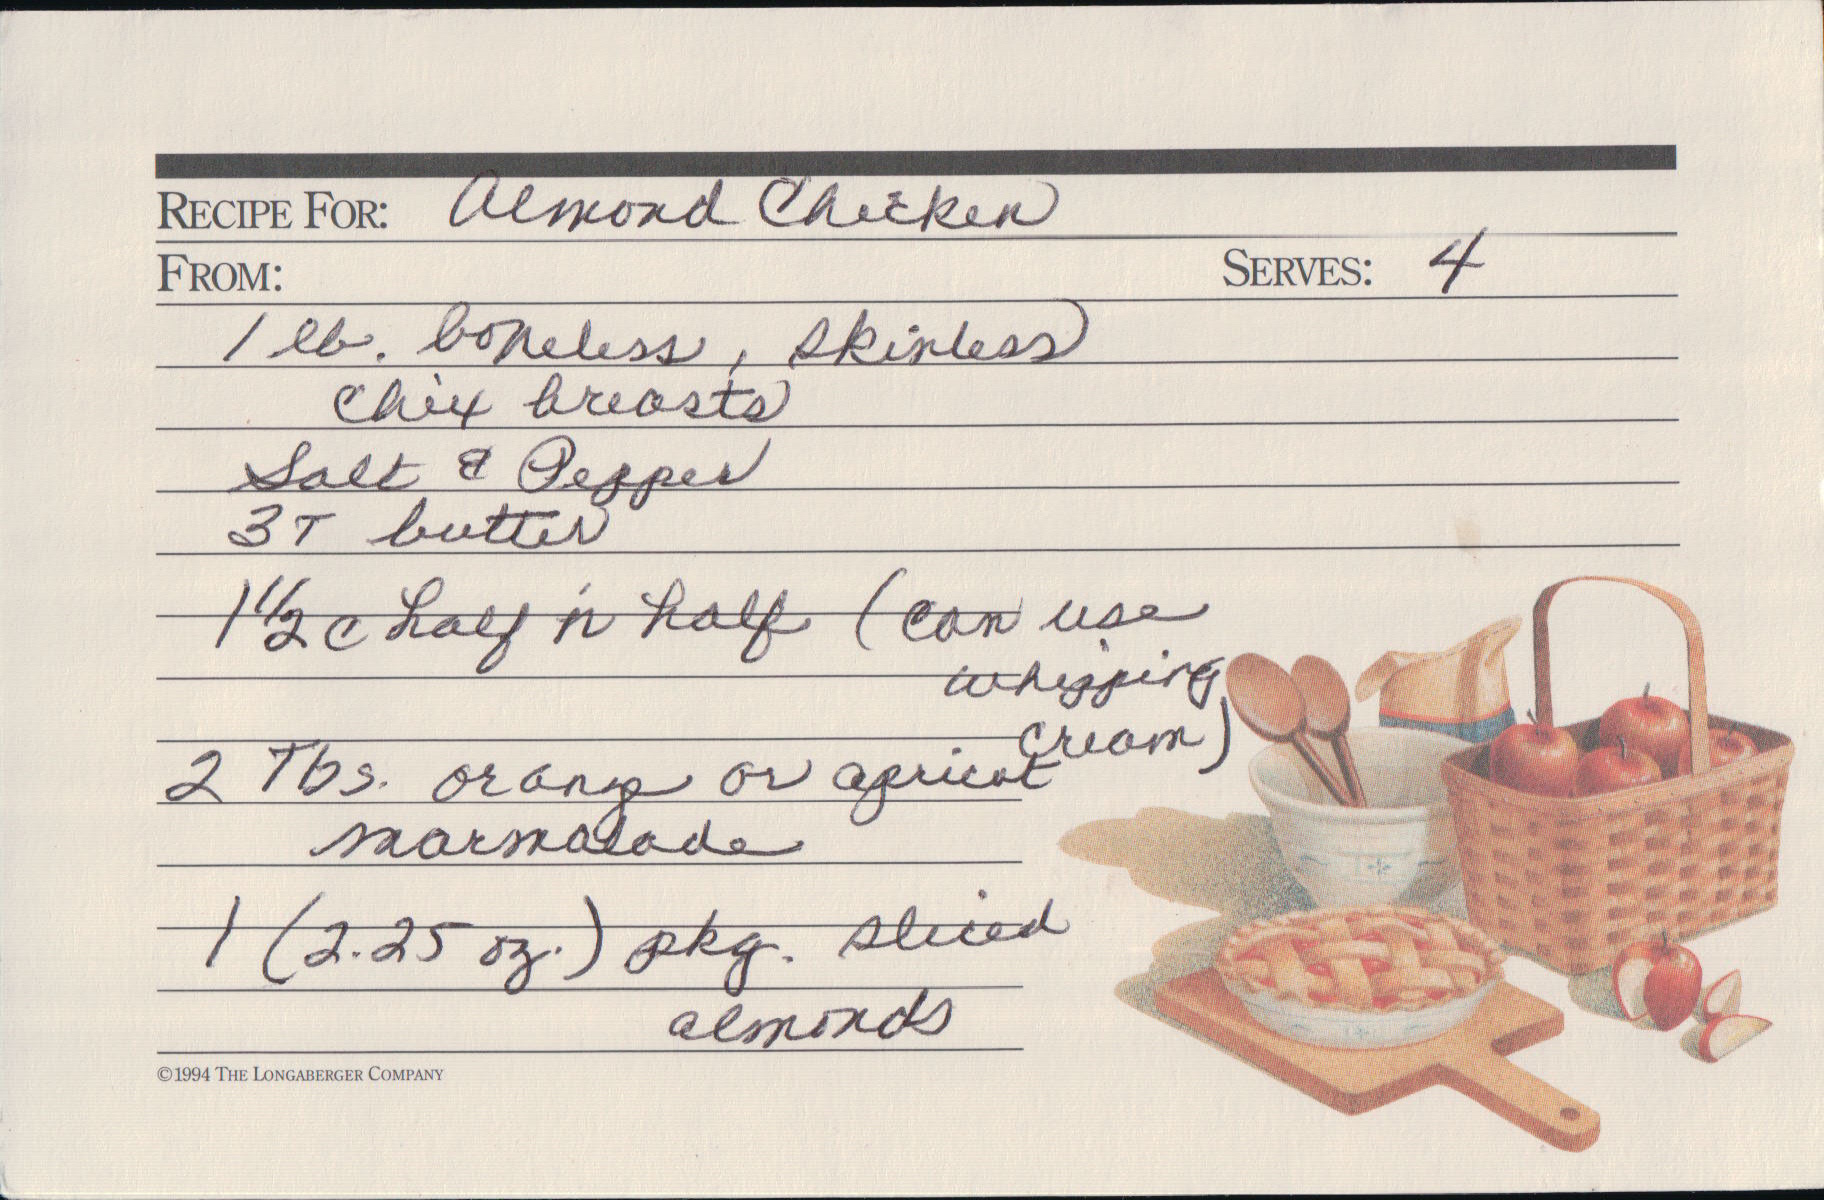 RECIPE FOR: Almond Chicken
FROM: SERVES: 4
1 lb. boneless, skinless
chix breasts
Salt & Pepper
3 T butter
1 1/2 c half 'n half (can use
whipping
cream)
2 Tbs. orange or apricot
marmalade
1 (2.25 oz.) pkg. sliced
almonds
©1994 THE LONGABERGER COMPANY